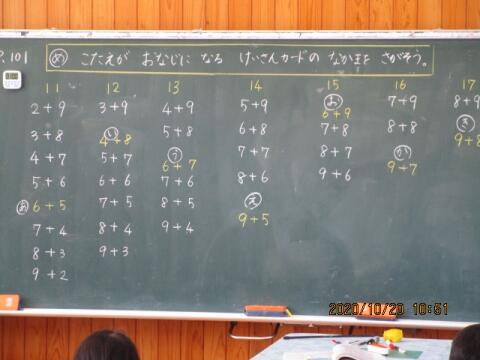 P.101
め こたえが おなじに なる けいさんカードの なかまを さがそう。
11 12 13 14 15 16 17
2+9 3+9 4+9 5+9 お 6+9 7+9 8+9
3+8 い 4+8 5+8 6+8 7+8 8+8 き 9+8
4+7 5+7 う 6+7 7+7 8+7 か 9+7
5+6 6+6 7+6 8+6 9+6
あ 6+5 7+5 8+5 え 9+5
7+4 8+4 9+4
8+3 9+3
9+2
2020/10/20 10:51